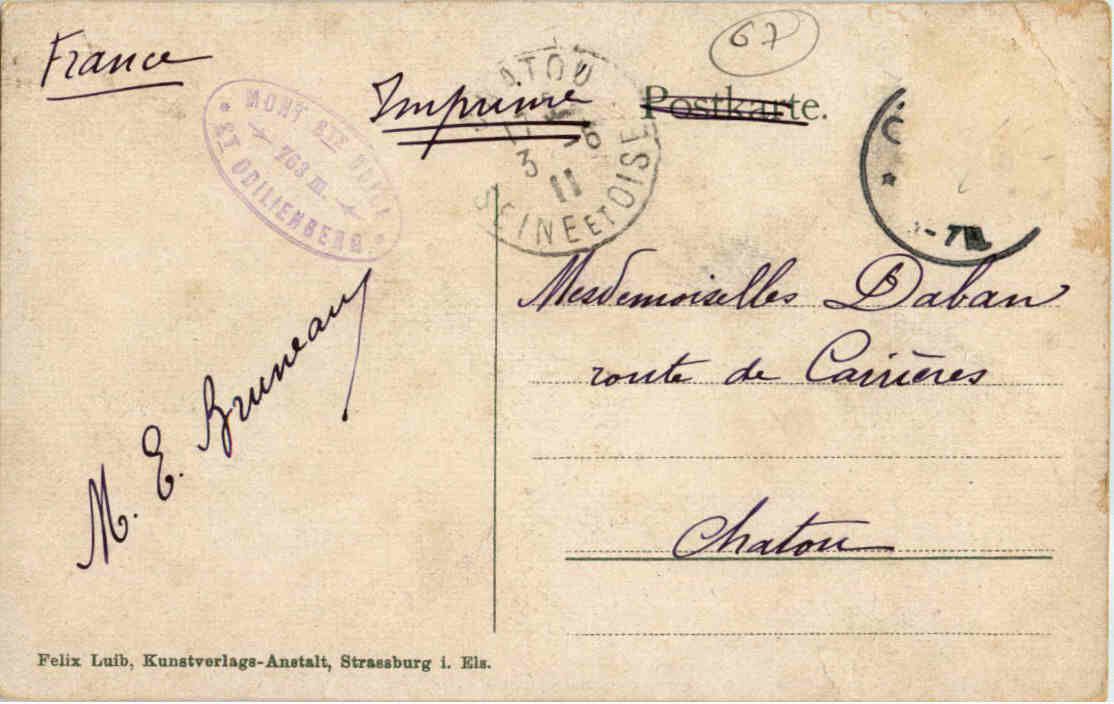 France
67
Imprimé
Postkarte.
MONT STE ODILE
763 m.
ST ODILIENBERG
CHATOU
3
11
SEINE ET OISE
Mesdemoiselles Daban
route de Carrières
Chatou
M. E. Bruneau
Felix Luib, Kunstverlags-Anstalt, Strassburg i. Els.